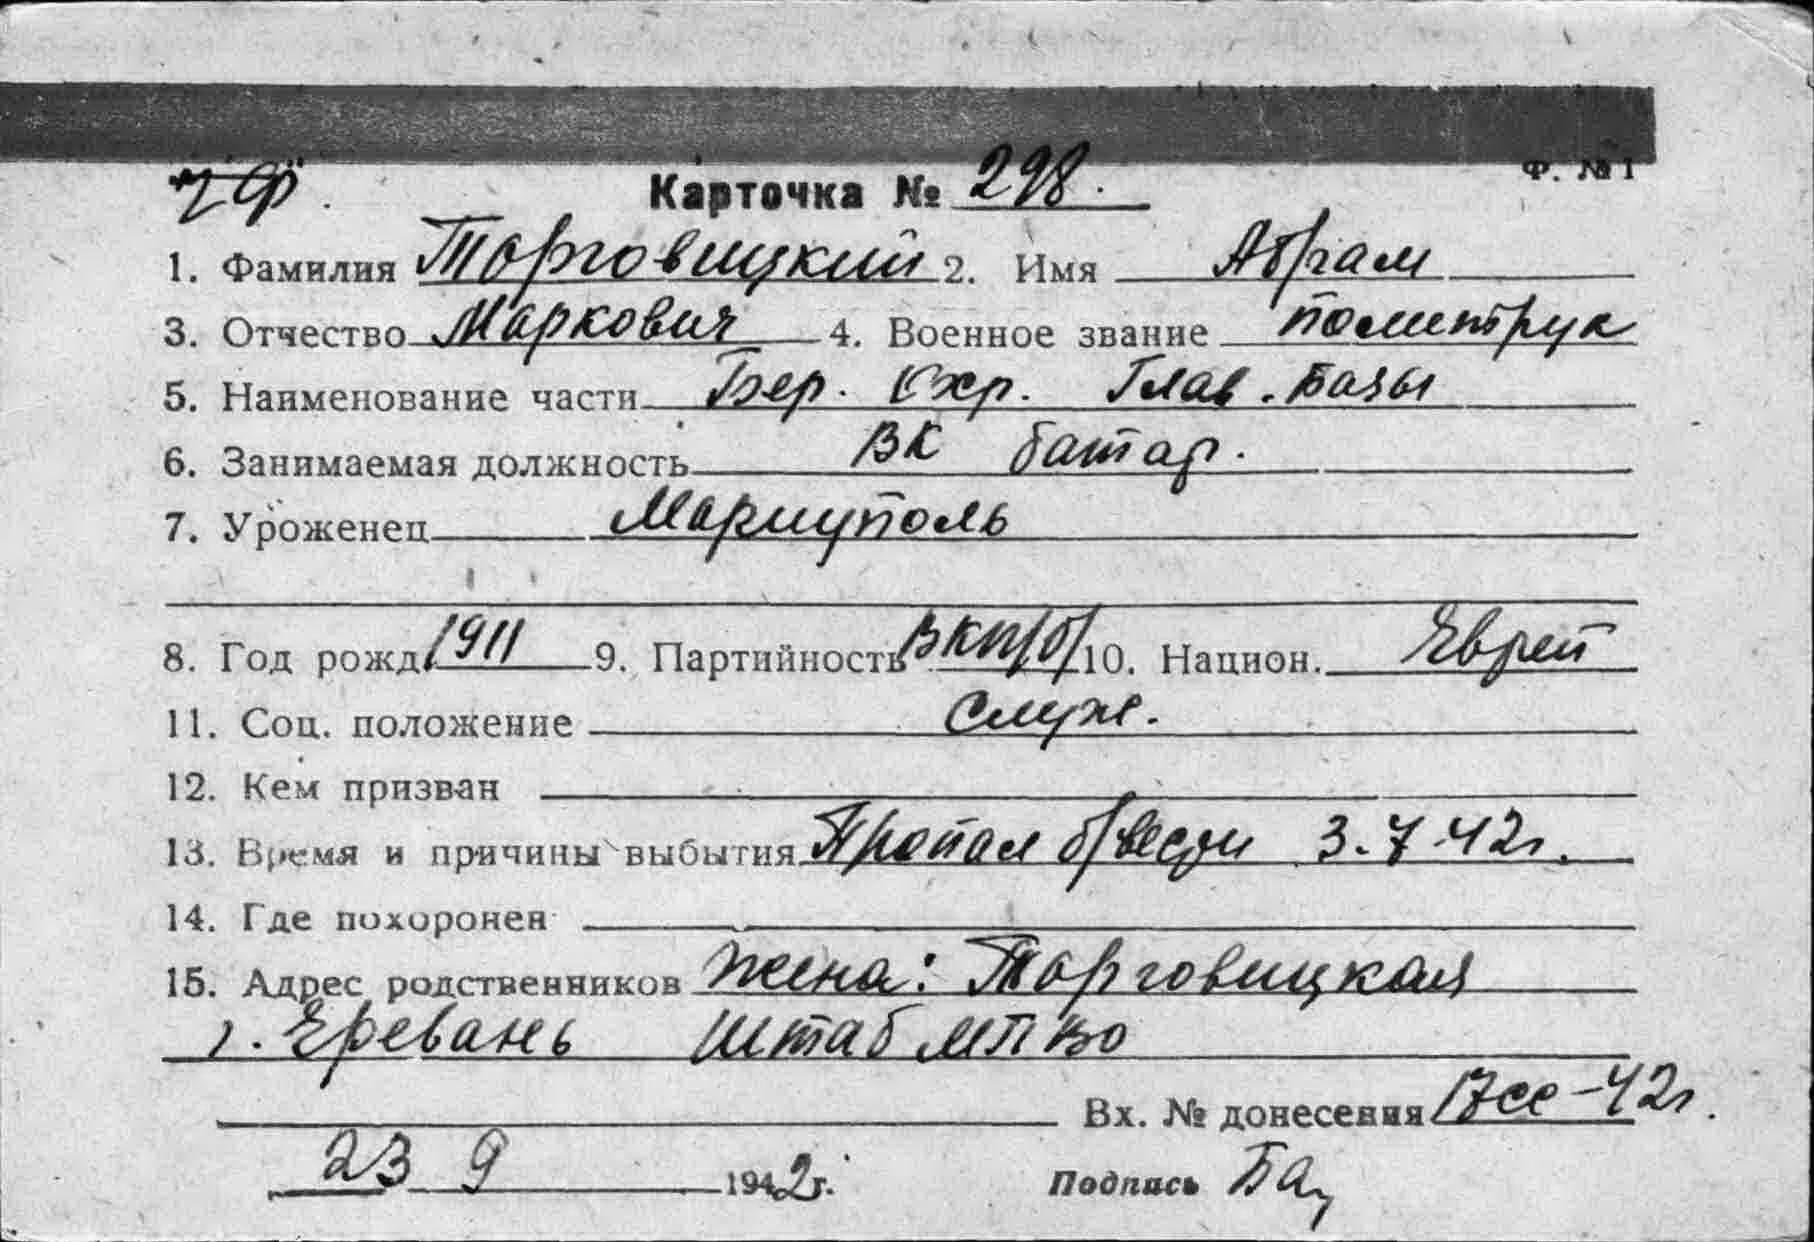 Ф. № 1
"ЧФ".
Карточка № 298.
1. Фамилия Торговицкий 2. Имя Абрам
3. Отчество Маркович 4. Военное звание политрук
5. Наименование части Бер. Охр. Глав. Базы
6. Занимаемая должность ВК батар.
7. Уроженец Мариуполь
8. Год рожд. 1911 9. Партийность ВКП/б/ 10. Национ. Еврей
11. Соц. положение служ.
12. Кем призван
13. Время и причины выбытия Пропал б/вести 3.7.42г.
14. Где похоронен
15. Адрес родственников жена: Торговицкая
г. Еревань штаб МПВО
Вх. № донесения 17сс-42г.
23 9 1942г.
Подпись